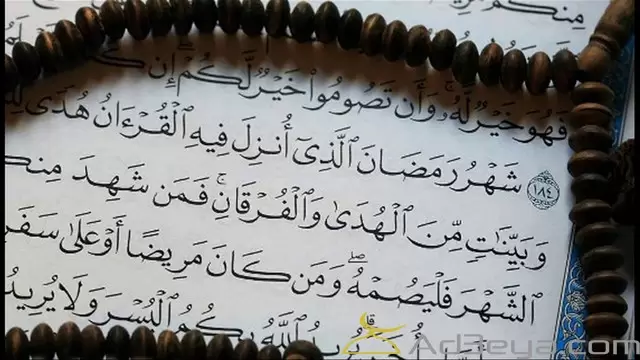 مِنكُم
فَهُوَ خَيْرٌ لَّهُۥۚ وَأَن تَصُومُوا۟ خَيْرٌ لَّكُمْۖ إِن
١٨٤ شَهْرُ رَمَضَانَ ٱلَّذِىٓ أُنزِلَ فِيهِ ٱلْقُرْءَانُ هُدًى
وَبَيِّنَٰتٍ مِّنَ ٱلْهُدَىٰ وَٱلْفُرْقَانِۚ فَمَن شَهِدَ
ٱلشَّهْرَ فَلْيَصُمْهُۖ وَمَن كَانَ مَرِيضًا أَوْ عَلَىٰ سَفَرٍ
ٱللَّهُ بِكُمُ ٱلْيُسْرَ وَلَا يُرِيدُ
ArBeya.com